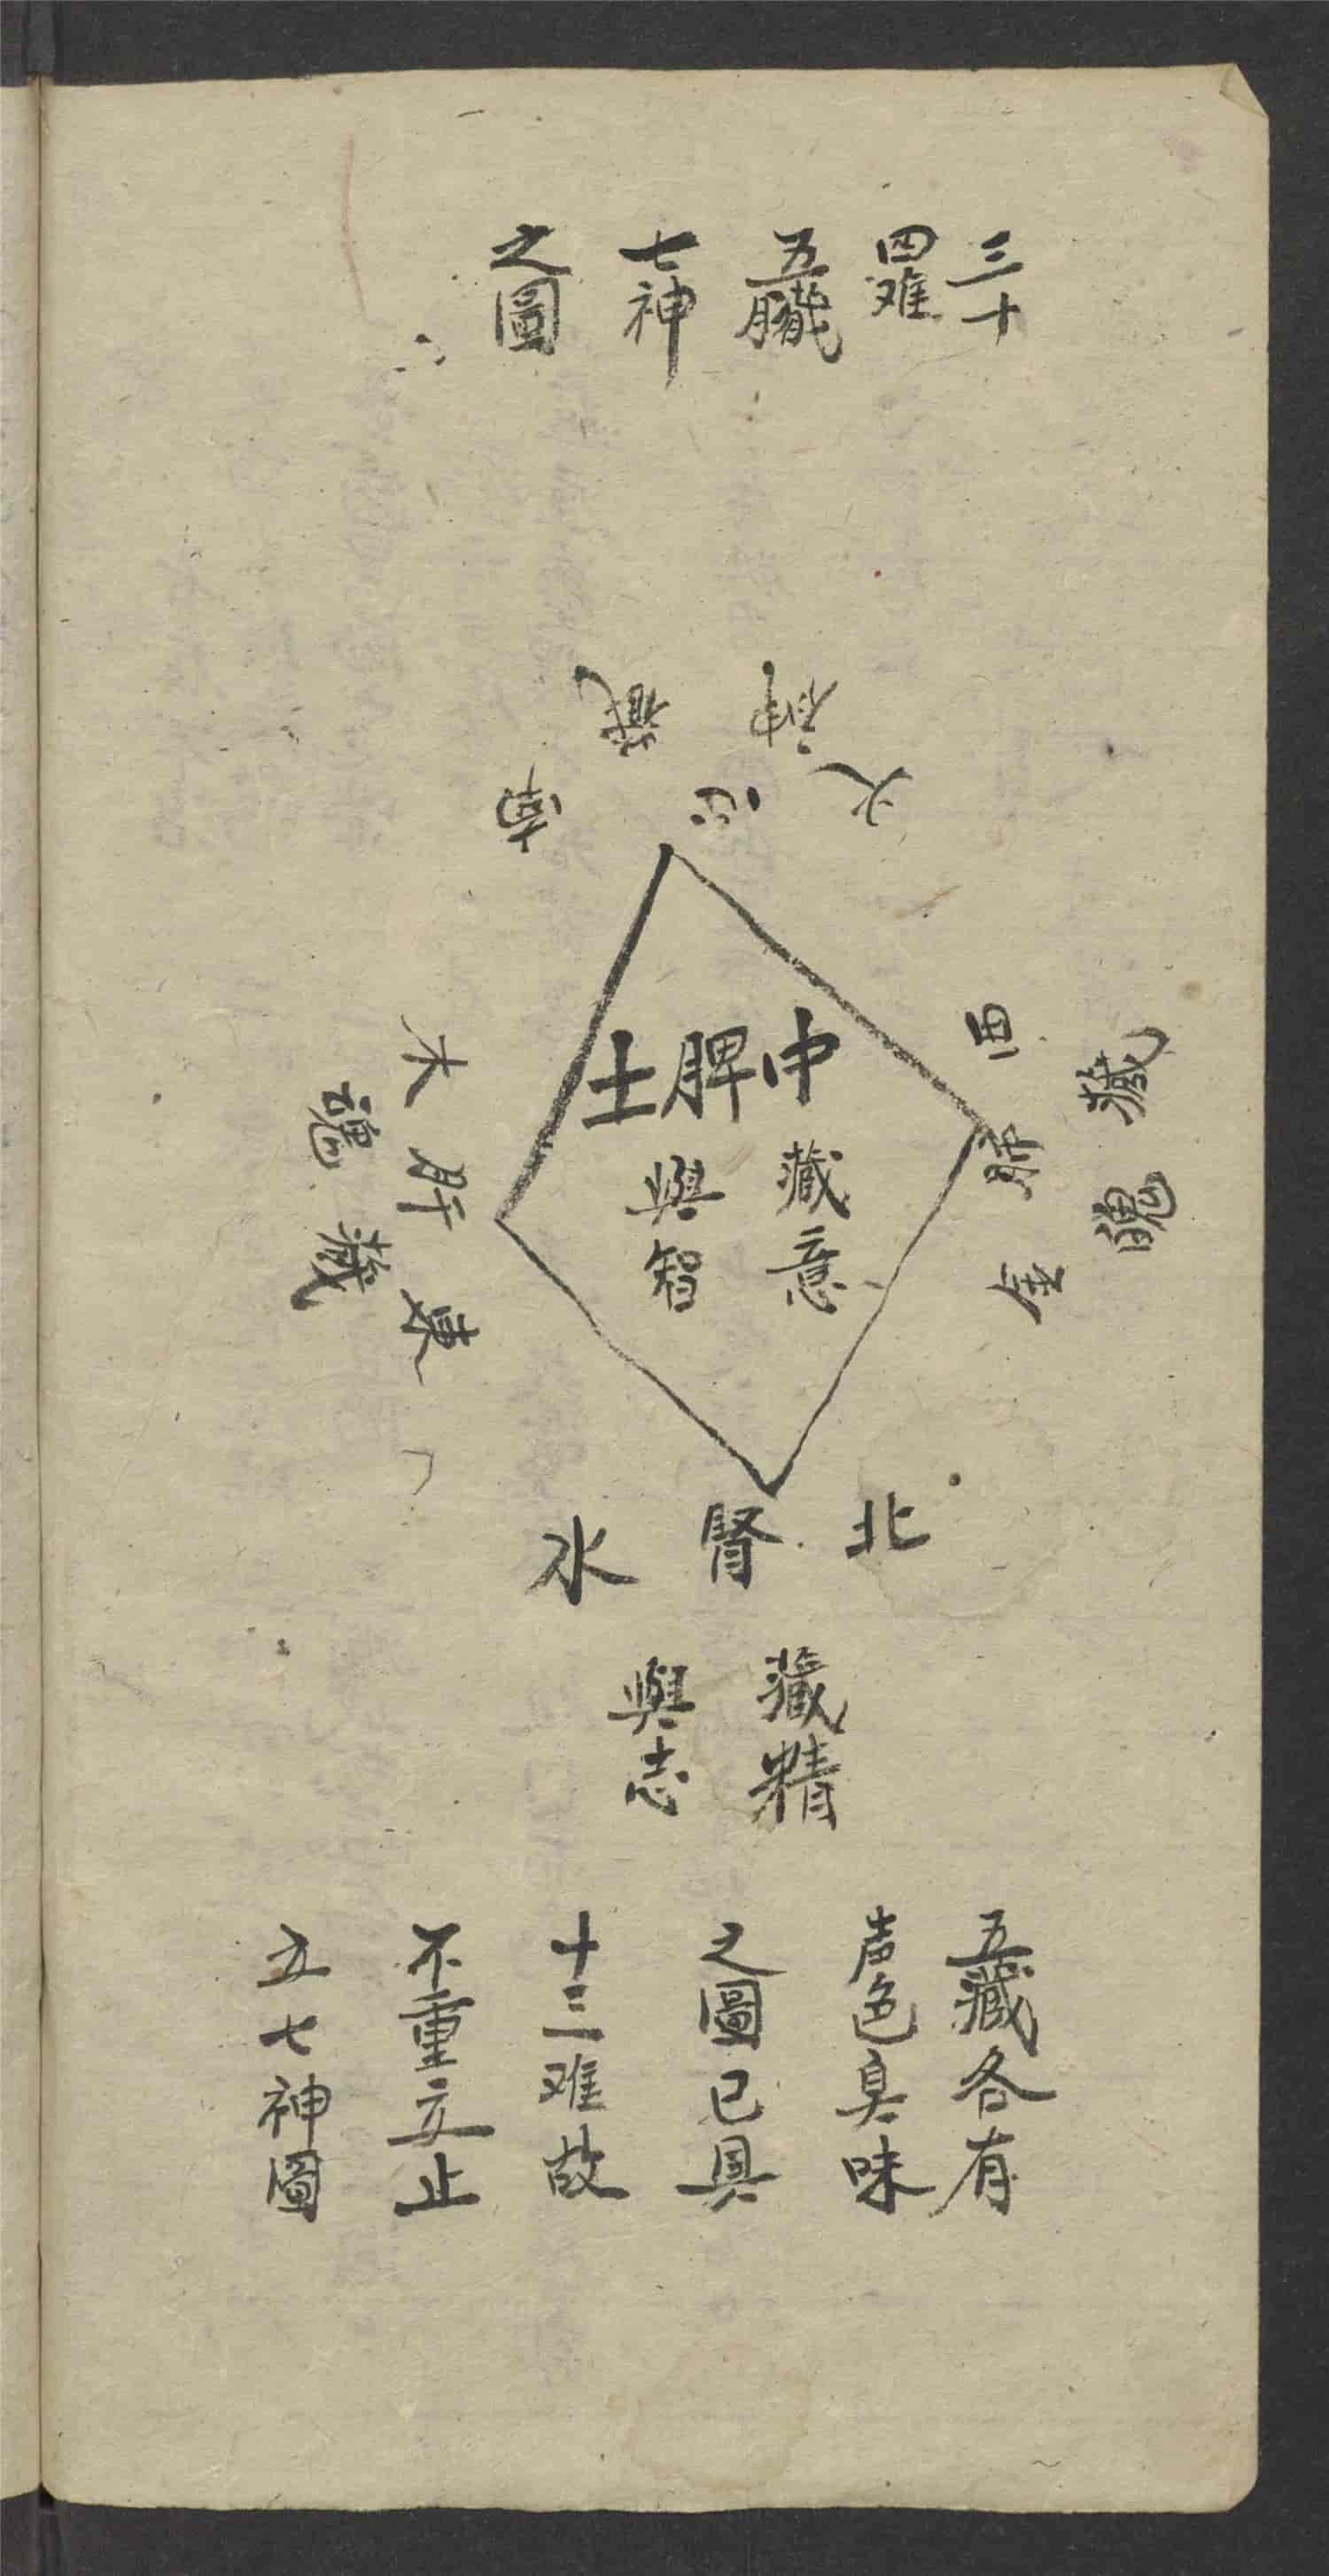 三十
四难
五臓
七神
之圖
南心火
藏神
西肺金
藏魄
中脾土
藏意
與智
東肝木
藏魂
北腎水
藏精
與志
五藏各有
声色臭味
之圖已具
十三难故
不重立止
立七神圖